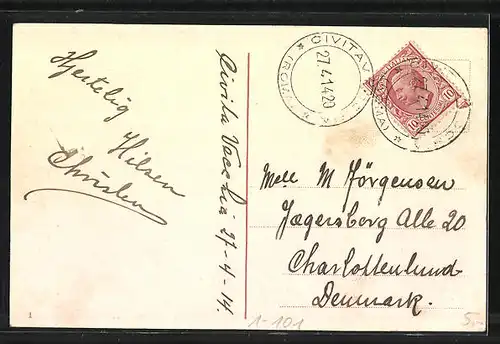 Hjertelig
Hilsen
Civita Vecchia 27-4-14.
CIVITAV
(ROMA)
27.4.14.20
10
10
Mell M Jörgensen
Jægersborg Alle 20
Charlottenlund
Denmark.
1
1-101
5.-